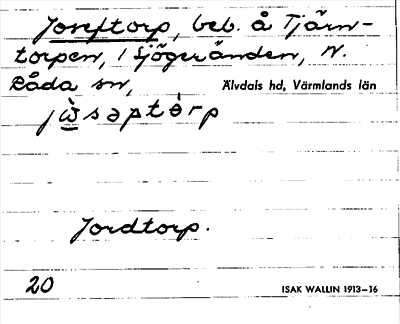 Joseftorp, beb. å Tjärn-
torpen, i Sjögränden, N.
Råda sn, Älvdals hd, Värmlands län
jẁsəptòrp
Jordtorp.
20 ISAK WALLIN 1913–16